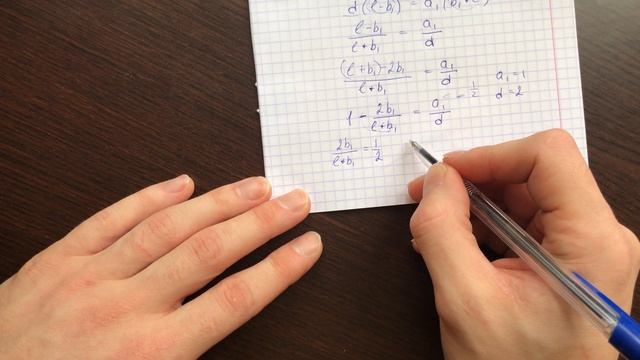 d(ℓ-b₁) = a₁(b₁+
(ℓ-b₁)/(ℓ+b₁) = a₁/d
((ℓ+b₁)-2b₁)/(ℓ+b₁) = a₁/d a₁=1
1 - 2b₁/(ℓ+b₁) = a₁/d = 1/2 d=2
2b₁/(ℓ+b₁) = 1/2